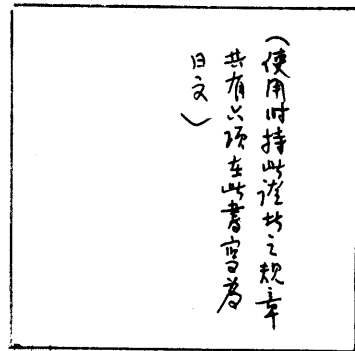 （使用时持此证书之规章
共有六项在此書寫為
日文）